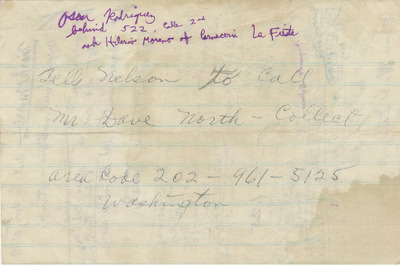 Oscar Rodriguez
behind 522, Calle 2nd
ask Hilario Moreno of Carniceria La Fuente
Tell Nelson to Call
Mr Dave North - Collect
area Code 202 - 961 - 5125
Washington